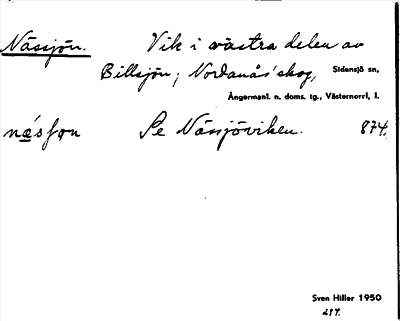 Nässjön. Vik i västra delen av
Billsjön; Nordanås' skog, Sidensjö sn,
Ångermanl. n. doms. tg., Västernorrl. l.
næ´sfɔn Se Nässjöviken. 874.
Sven Hiller 1950